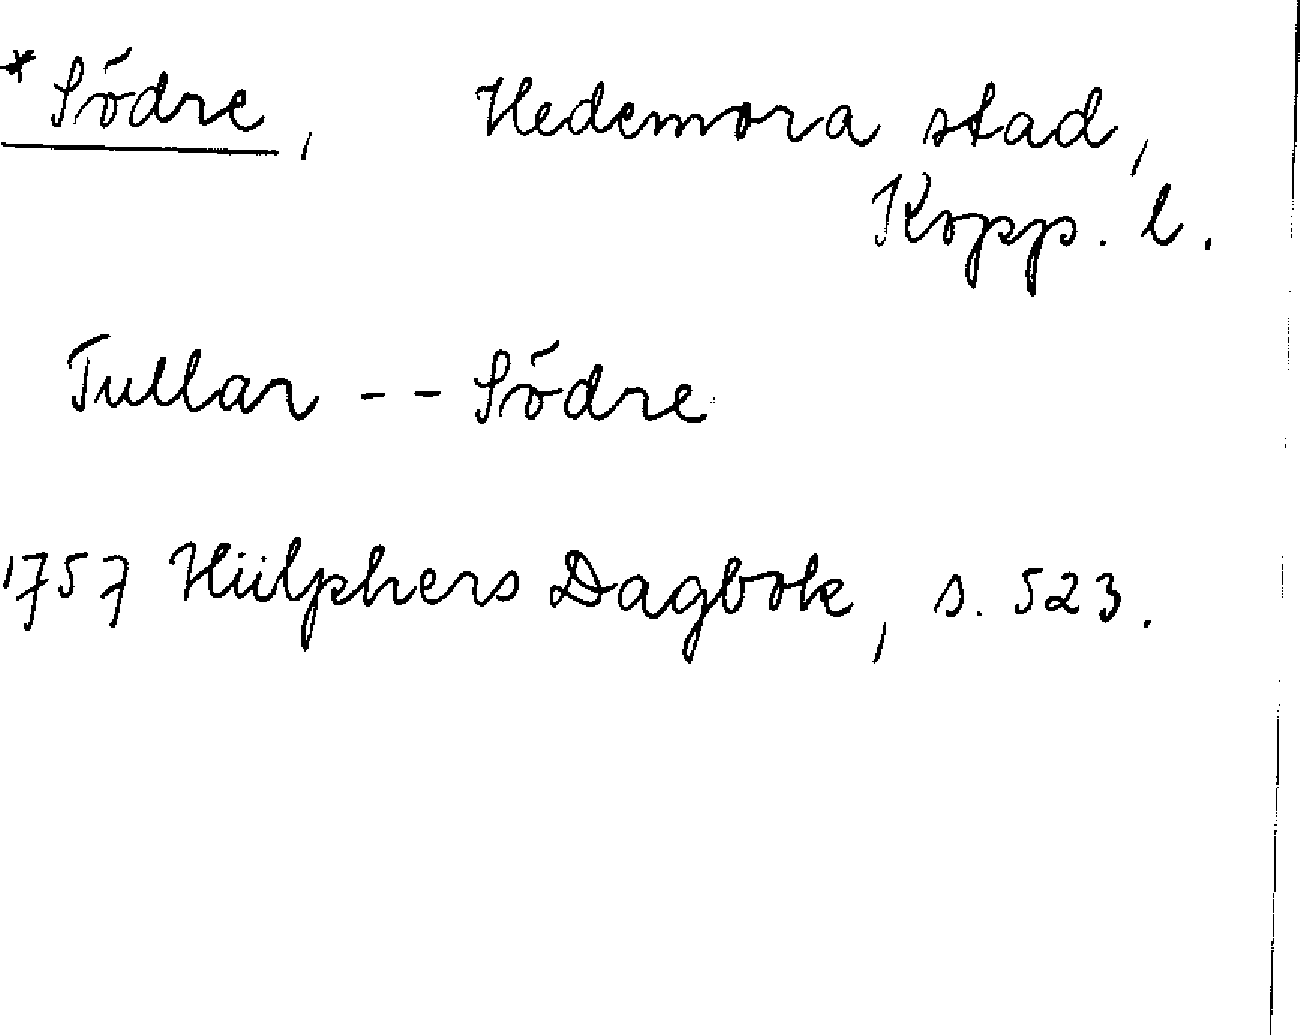 *Södre, Hedemora stad,
Kopp. l.
Tullar -- Södre
1757 Hülphers Dagbok, s. 523.